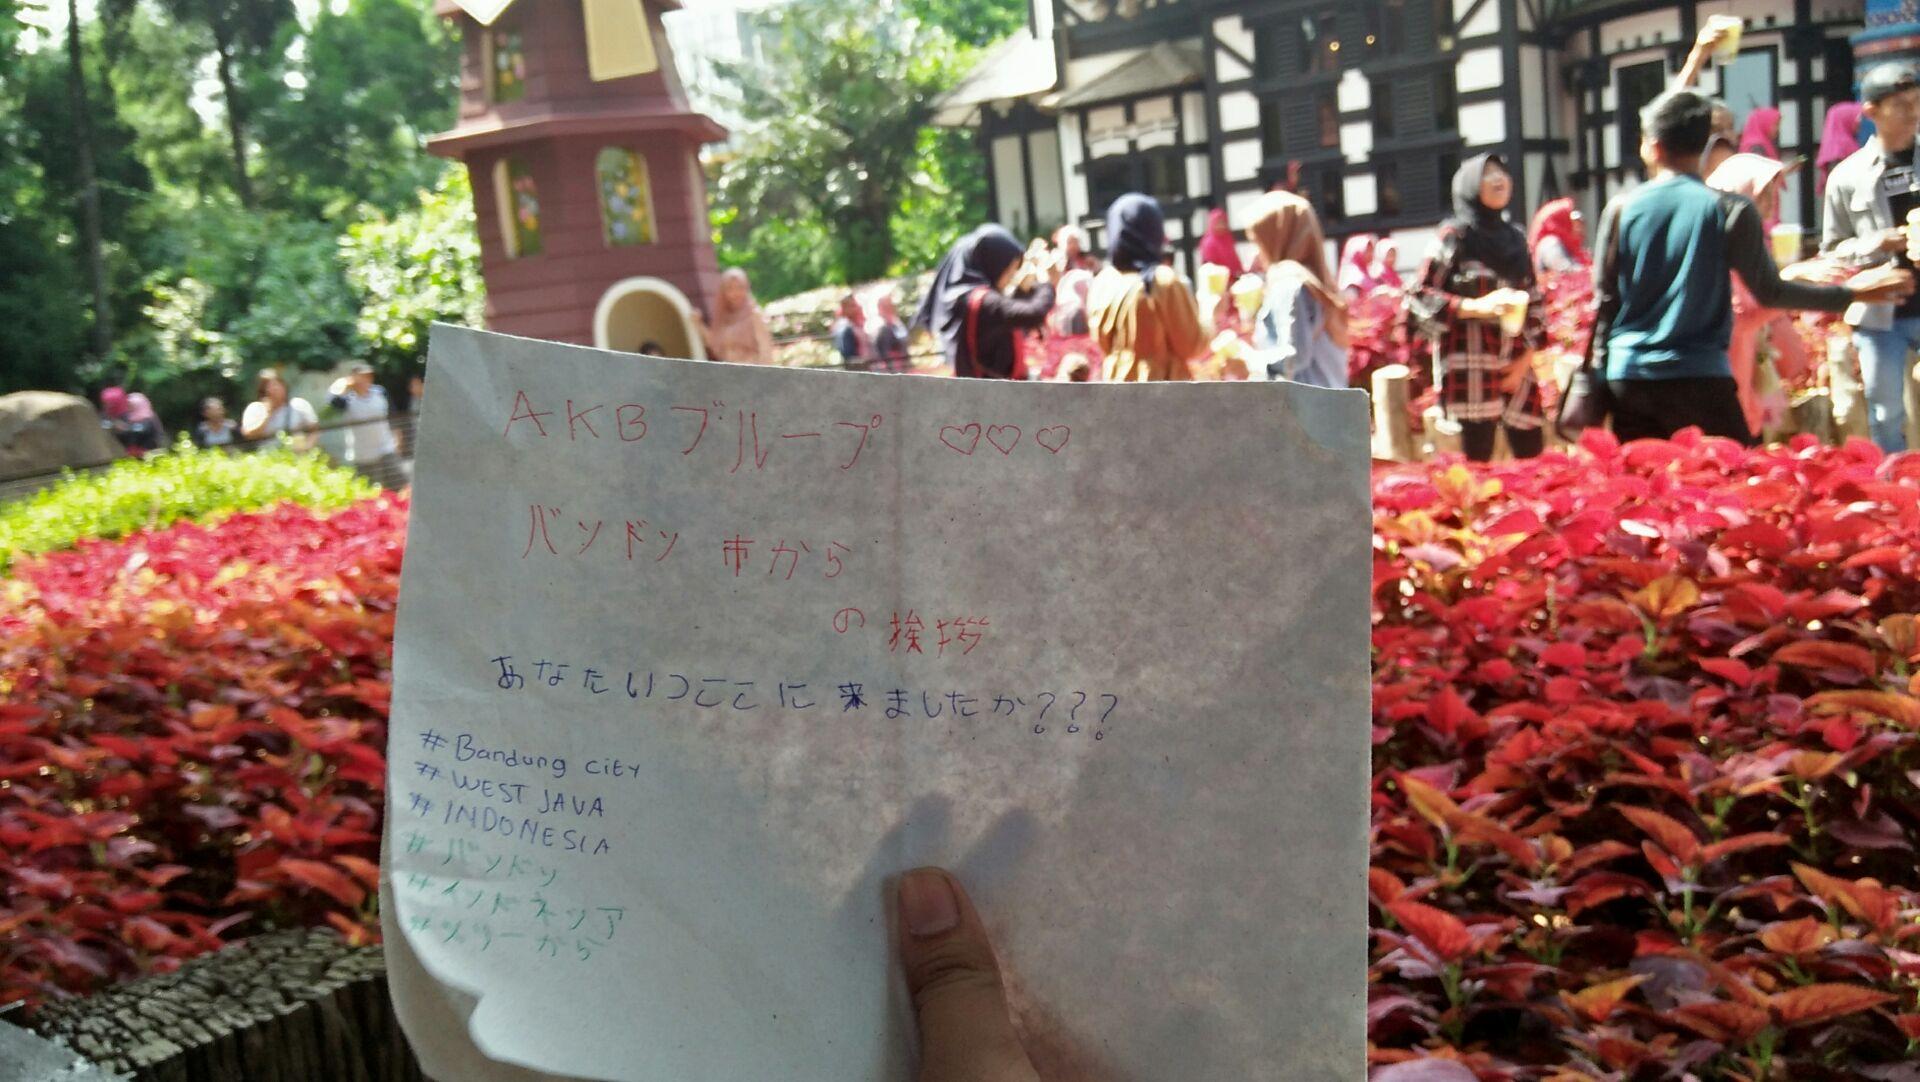 AKB ブループ ♡♡♡
バンドン 市から
の 挨拶
あなたいつここに 来ましたか???
# Bandung City
# WEST JAVA
# INDONESIA
# バンドン
# インドネシア